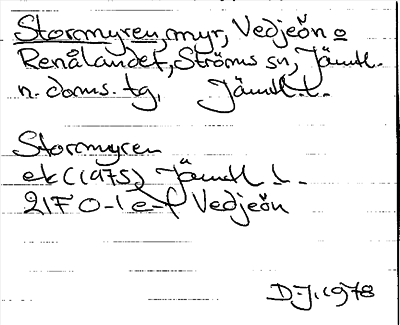 Stormyren, myr, Vedjeön o
Renålandet, Ströms sn, Jämtl.
n. doms. tg, Jämtl. l.
Stormyren
ek (1975) Jämtl. l.
21F 0-1 e-f Vedjeön
D-J. 1978